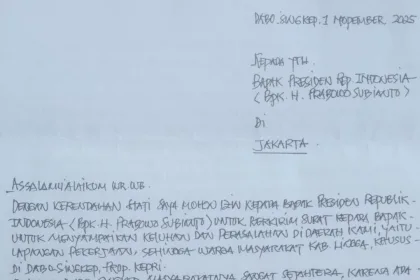 DABO.SINGKEP. 1 NOPEMBER 2025
KEPADA YTH.
BAPAK PRESIDEN REP. INDONESIA
( BPK. H. PRABOWO SUBIANTO )
DI
JAKARTA.
ASSALAMUALAIKUM WR. WB.
DENGAN KERENDAHAN HATI SAYA MOHON IZIN KEPADA BAPAK PRESIDEN REPUBLIK-
INDONESIA ( BPK H. PRABOWO SUBIANTO ) UNTUK BERKIRIM SURAT KEPADA BAPAK-
UNTUK MENYAMPAIKAN KELUHAN DAN PERSOALAN DI DAERAH KAMI, YAITU
LAPANGAN PEKERJAAN, SEHINGGA WARGA MASYARAKAT KAB. LINGGA, KHUSUS-
DI DABO-SINGKEP, PROP. KEPRI.
MASYARAKATNYA SANGAT SEJAHTERA, KARENA ADA